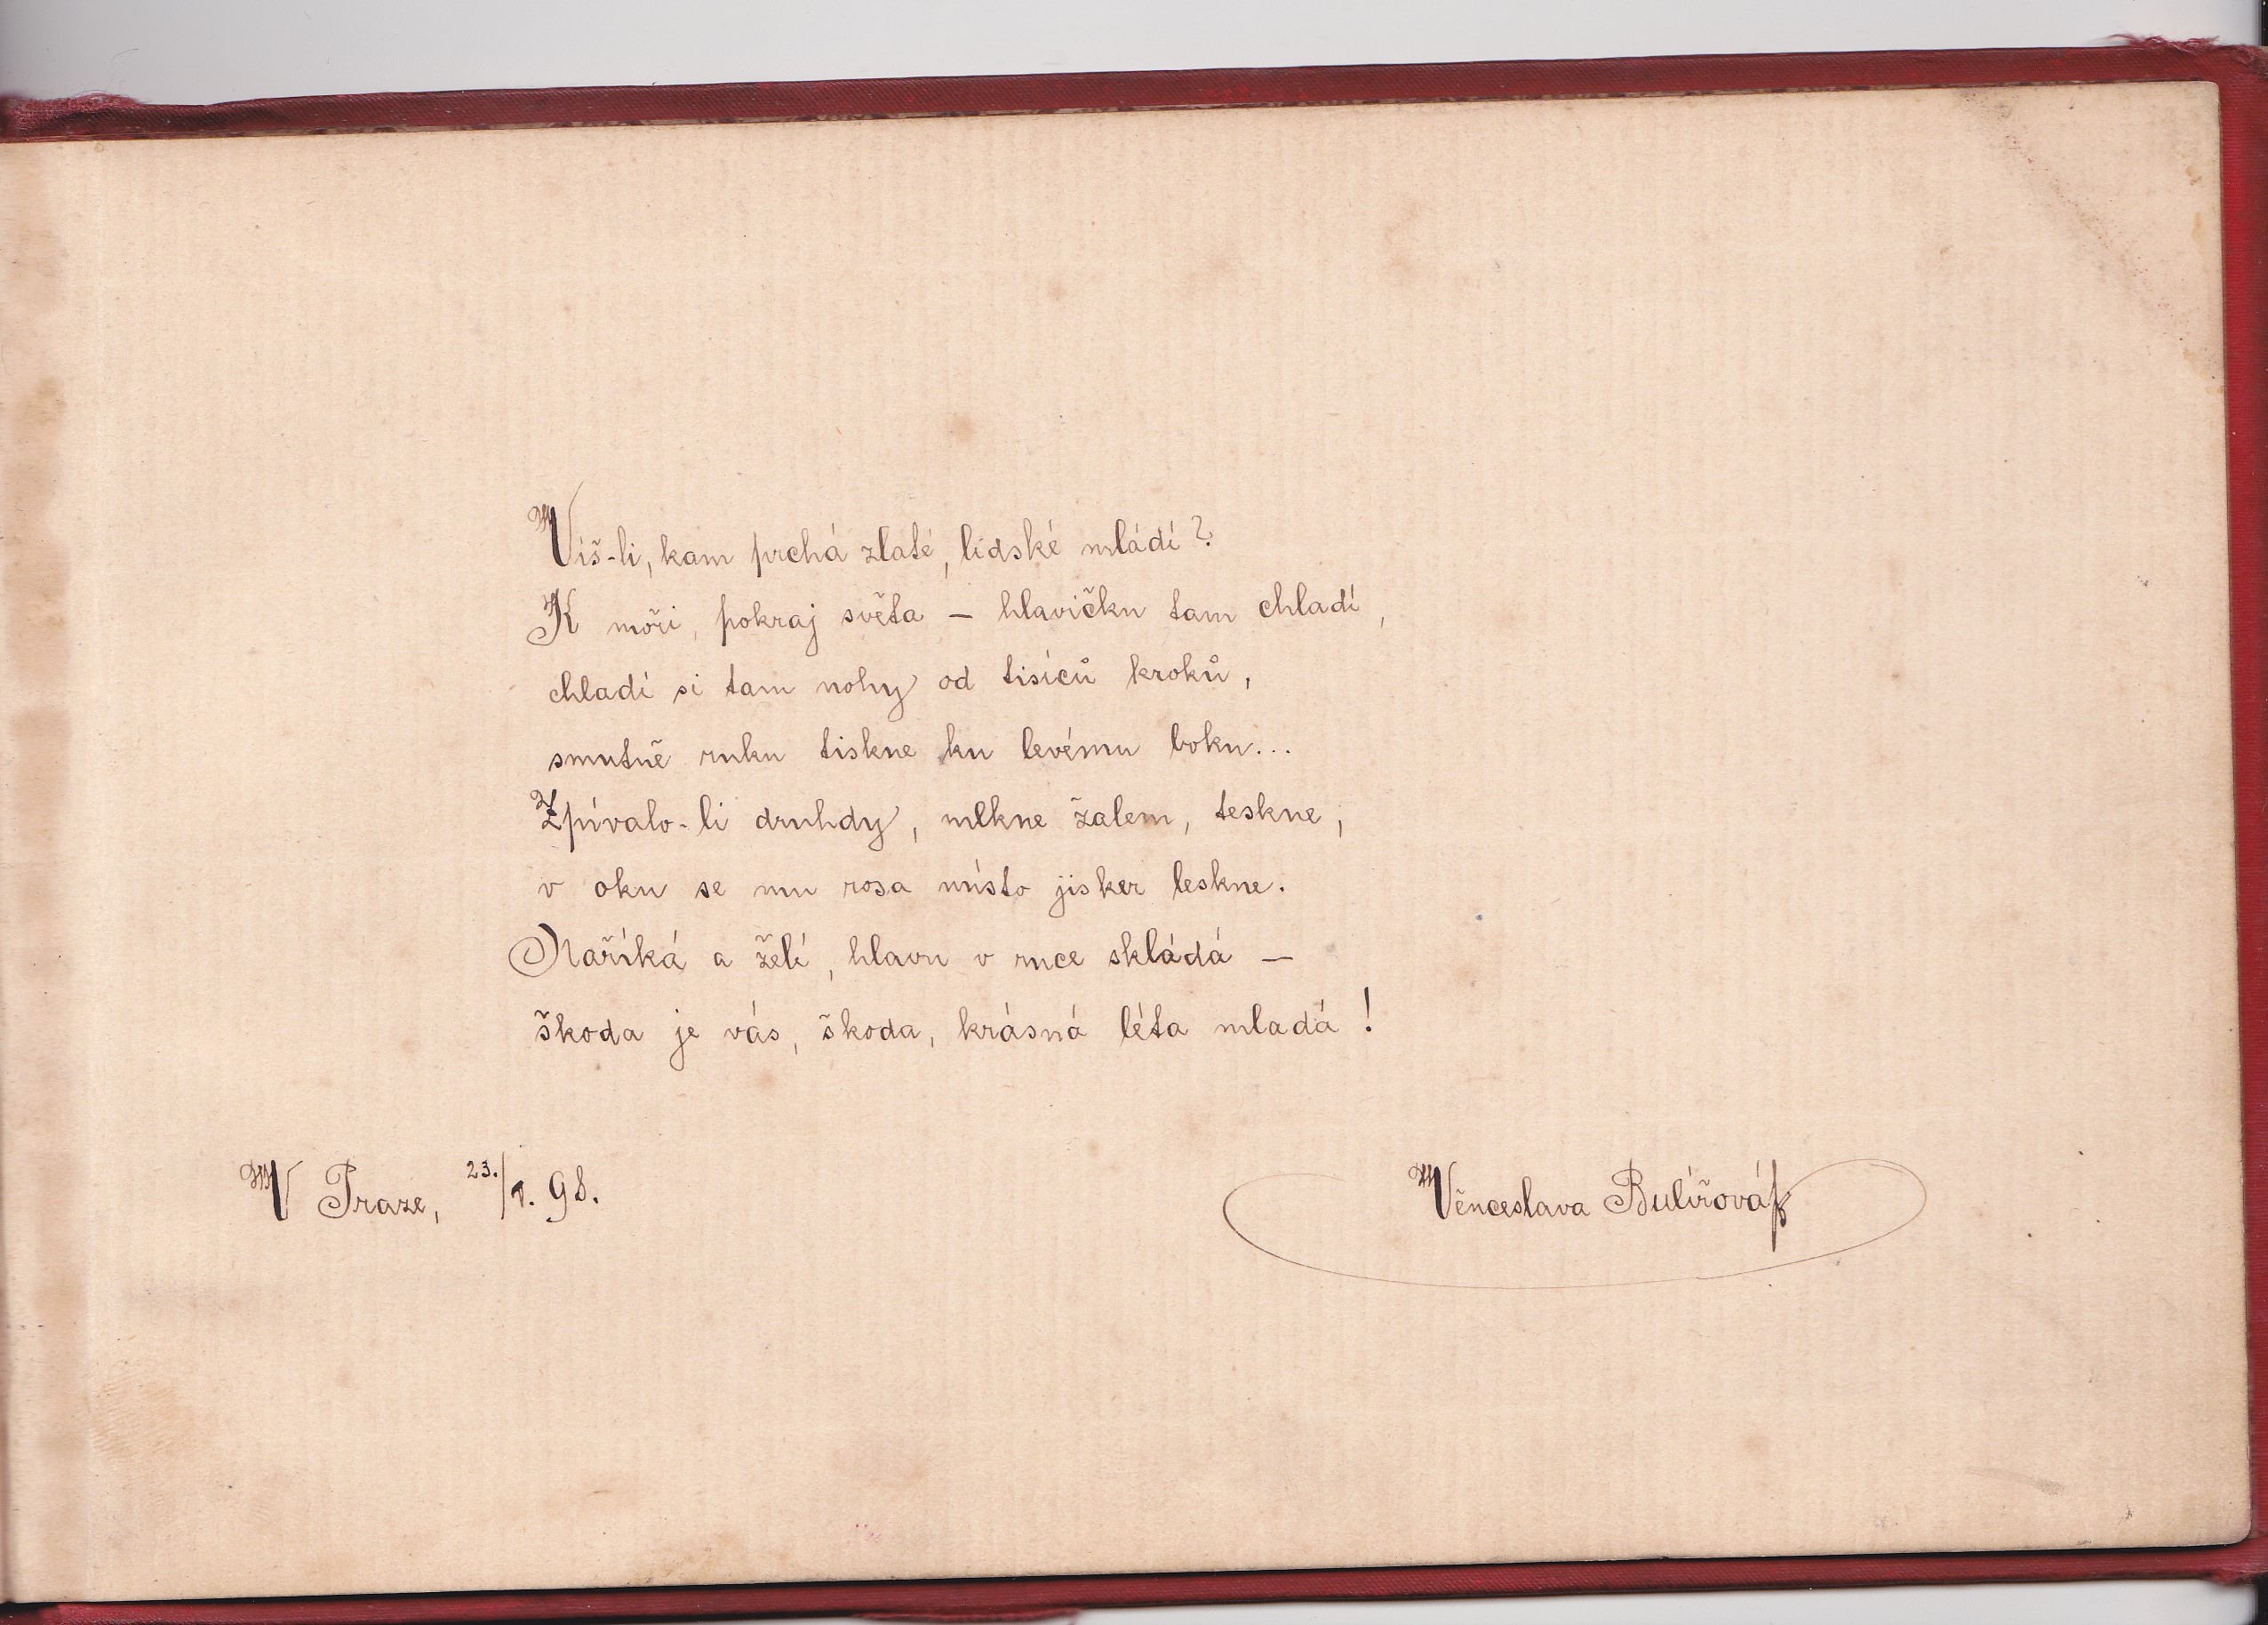 Víš-li, kam prchá zlaté, lidské mládí?
K moři, pokraj světa – hlavičku tam chladí,
chladí si tam nohy od tisíců kroků,
smutně ruku tiskne ku levému boku...
Zpívalo-li druhdy, mlkne žalem, teskne,
v oku se mu rosa místo jisker leskne.
Naříká a želí, hlavu v ruce skládá –
škoda je vás, škoda, krásná léta mladá!
V Praze, 23./1. 98.
Věnceslava Bulířová